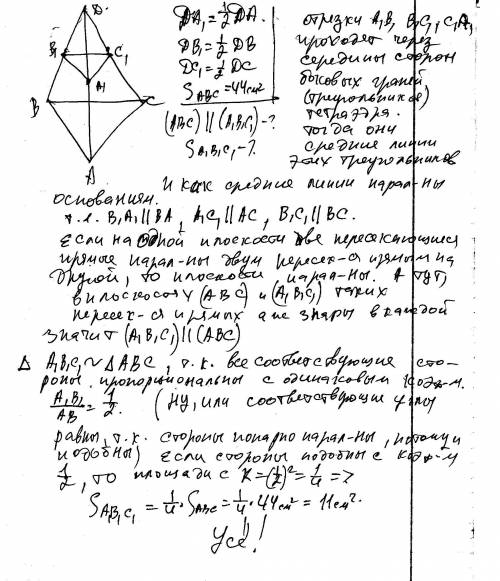 D
B₁ C₁
A₁
B C
A
DA₁ = 1/2 DA.
DB₁ = 1/2 DB
DC₁ = 1/2 DC
S_ABC = 44 см²
(ABC) || (A₁B₁C₁) - ?
S_A₁B₁C₁ - ?
отрезки A₁B₁ B₁C₁, C₁A₁
проходят через
середины сторон
боковых граней
(треугольников)
тетраэдра.
тогда они
средние линии
этих треугольников
и как средние линии парал-ны
основаниям.
т.е. B₁A₁ || BA, A₁C₁ || AC, B₁C₁ || BC.
Если на одной плоскости две пересекающиеся
прямые парал-ны двум пересек-ся прямым на
другой, то плоскости парал-ны. А тут,
в плоскостях (ABC) и (A₁B₁C₁) таких
пересек-ся прямых аж 3 пары в каждой
значит (A₁B₁C₁) || (ABC)
Δ A₁B₁C₁ ~ Δ ABC, т.к. все соответствующие сто-
роны пропорциональны с одинаковым коэф-м.
A₁B₁/AB = 1/2. (Ну, или соответствующие углы
равны, т.к. стороны попарно парал-ны, потому и
подобны) Если стороны подобны с коэф-м
1/2, то площади с K = (1/2)² = 1/4 =>
S_A₁B₁C₁ = 1/4 · S_ABC = 1/4 · 44 см² = 11 см².
Усё!